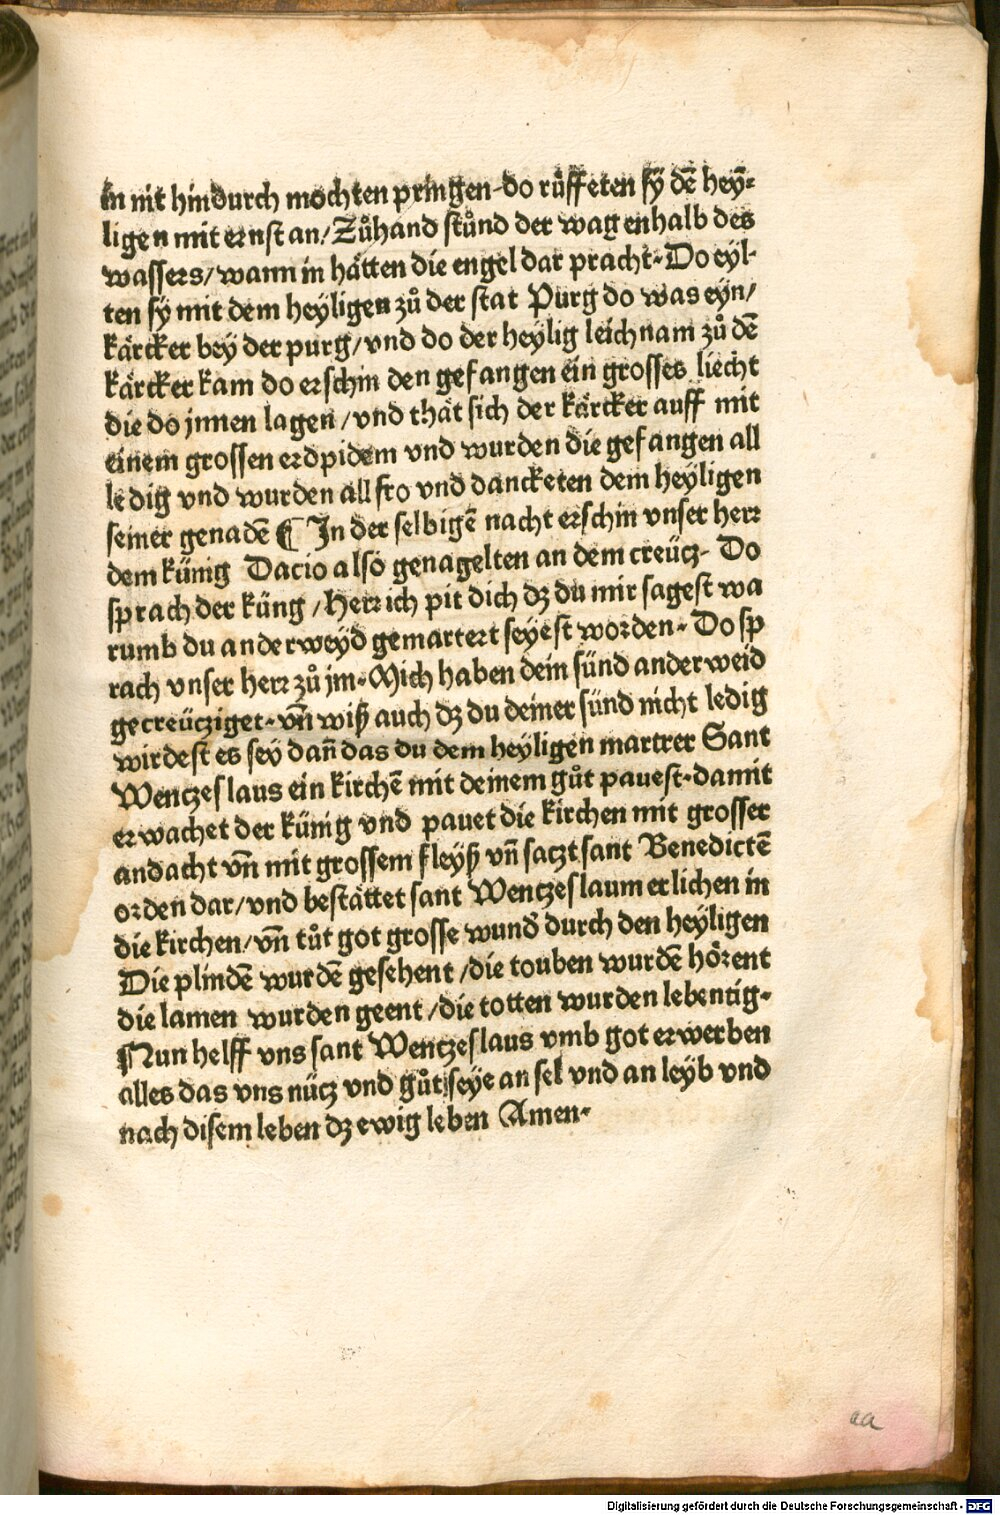 in nit hindurch mochten pringen-do růffeten sÿ dē heÿ=
ligen mit ernst an/Zůhand stůnd der wagenhalb des
wassers/wann in hätten die engel dar pracht·Do eyl-
ten sÿ mit dem heyligen zů der stat Purg do was eyn/
kärcker beÿ der purg/vnd do der heylig leichnam zů dē
kärcker kam do erschin den gefangen ein grosses liecht
die do jnnen lagen/vnd thät sich der kärcker auff mit
einem grossen erdpidem vnd wurden die gefangen all
ledig vnd wurden all fro vnd dancketen dem heyligen
seiner genadē ¶ In der selbigē nacht erschin vnser herr
dem künig Dacio also genagelten an dem creücz· Do
sprach der küng/Herr ich pit dich dz du mir sagest wa
rumb du anderweyd gemartert seyest worden· Do sp
rach vnser herr zů jm·Mich haben dein sünd anderweid
gecreücziget·vn̄ wiß auch dz du deiner sünd nicht ledig
wirdest es seÿ dan̄ das du dem heyligen martrer Sant
Wenczeslaus ein kirchē mit deinem gůt pauest·damit
erwachet der künig vnd pauet die kirchen mit grosser
andacht vn̄ mit grossem fleyß vn̄ saczt sant Benedictē
orden dar/vnd bestättet sant Wenczeslaum erlichen in
die kirchen/vn̄ tůt got grosse wund̄ durch den heyligen
Die plindē wurdē gesehent/die touben wurdē hörent
die lamen wurden geent/die totten wurden lebentig·
Nun helff vns sant Wenczeslaus vmb got erwerben
alles das vns nücz vnd gůt seye an sel vnd an leyb vnd
nach disem leben dz ewig leben Amen·
aa
Digitalisierung gefördert durch die Deutsche Forschungsgemeinschaft - DFG